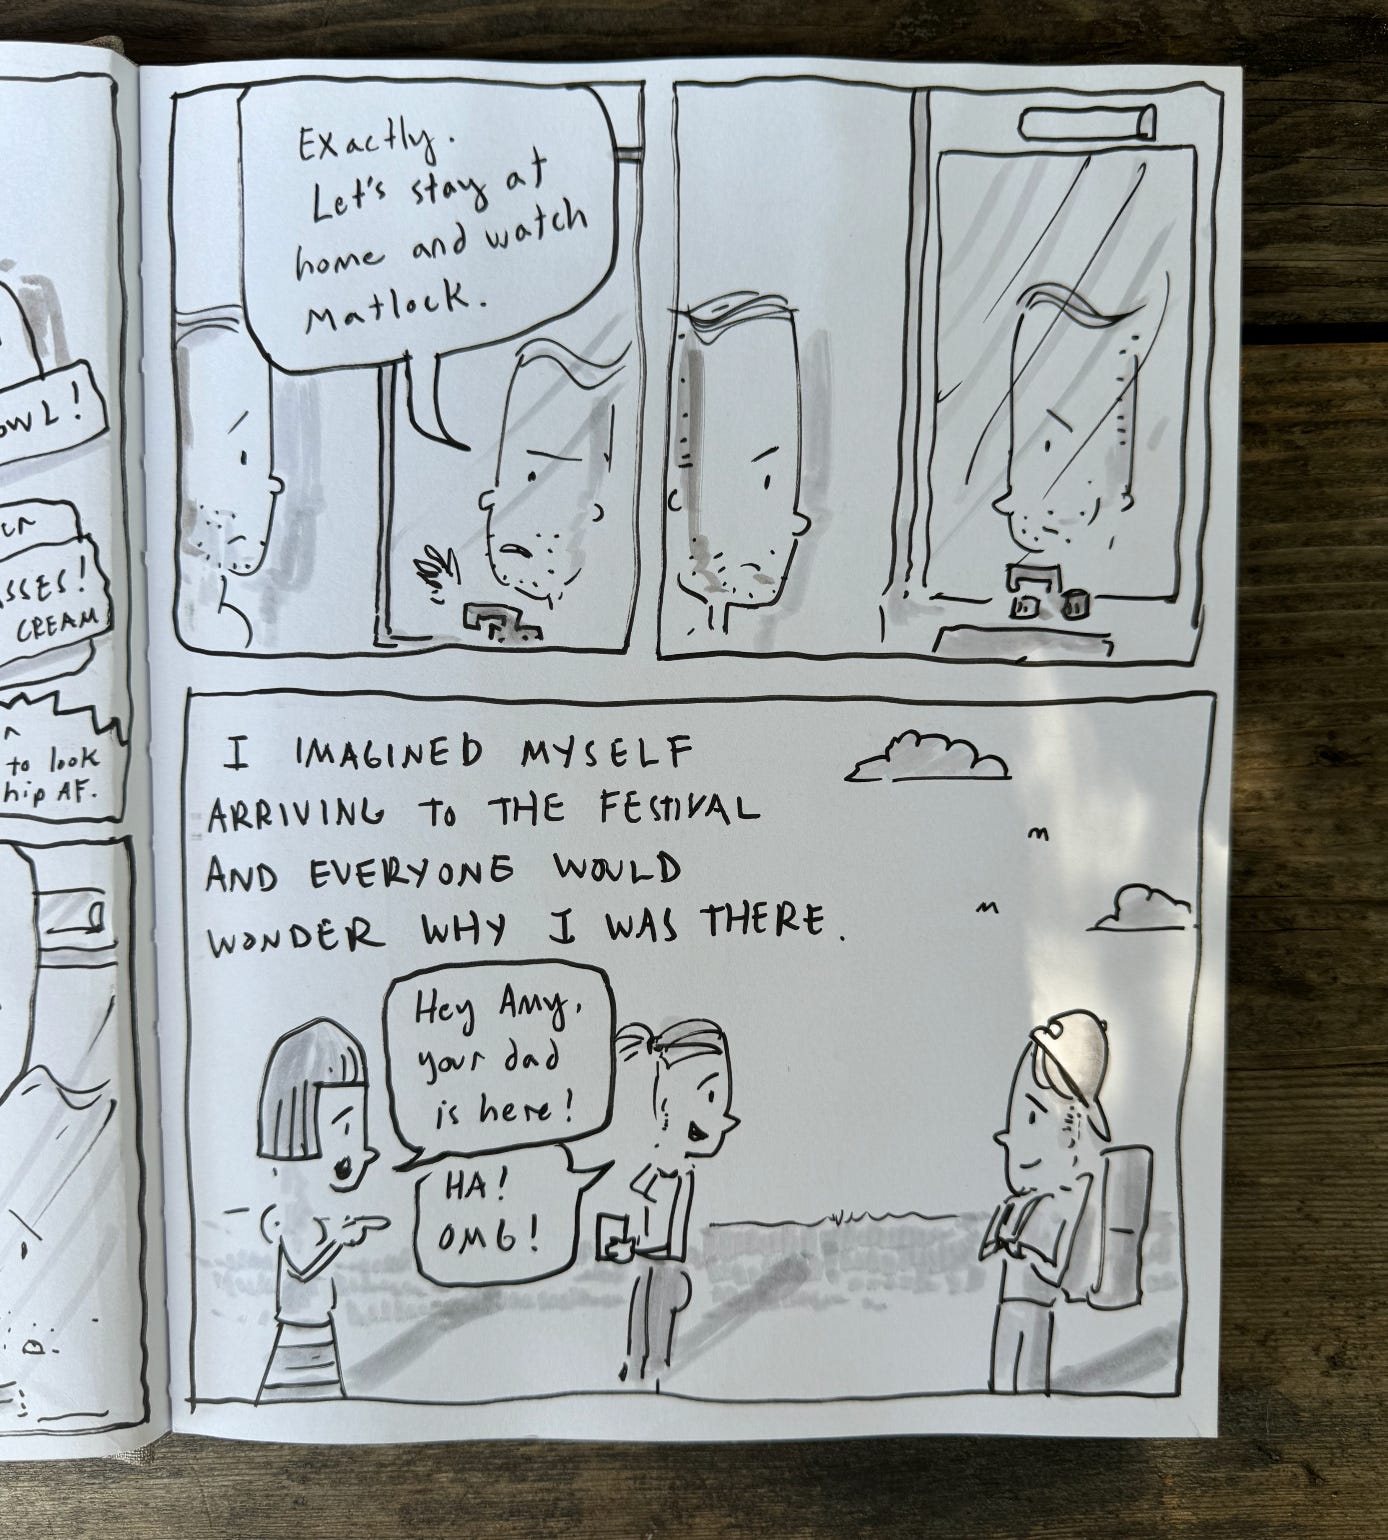 SSES!
CREAM
to look
hip AF.
Exactly.
Let's stay at
home and watch
Matlock.
I IMAGINED MYSELF
ARRIVING TO THE FESTIVAL
AND EVERYONE WOULD
WONDER WHY I WAS THERE.
Hey Amy,
your dad
is here!
HA!
OMG!